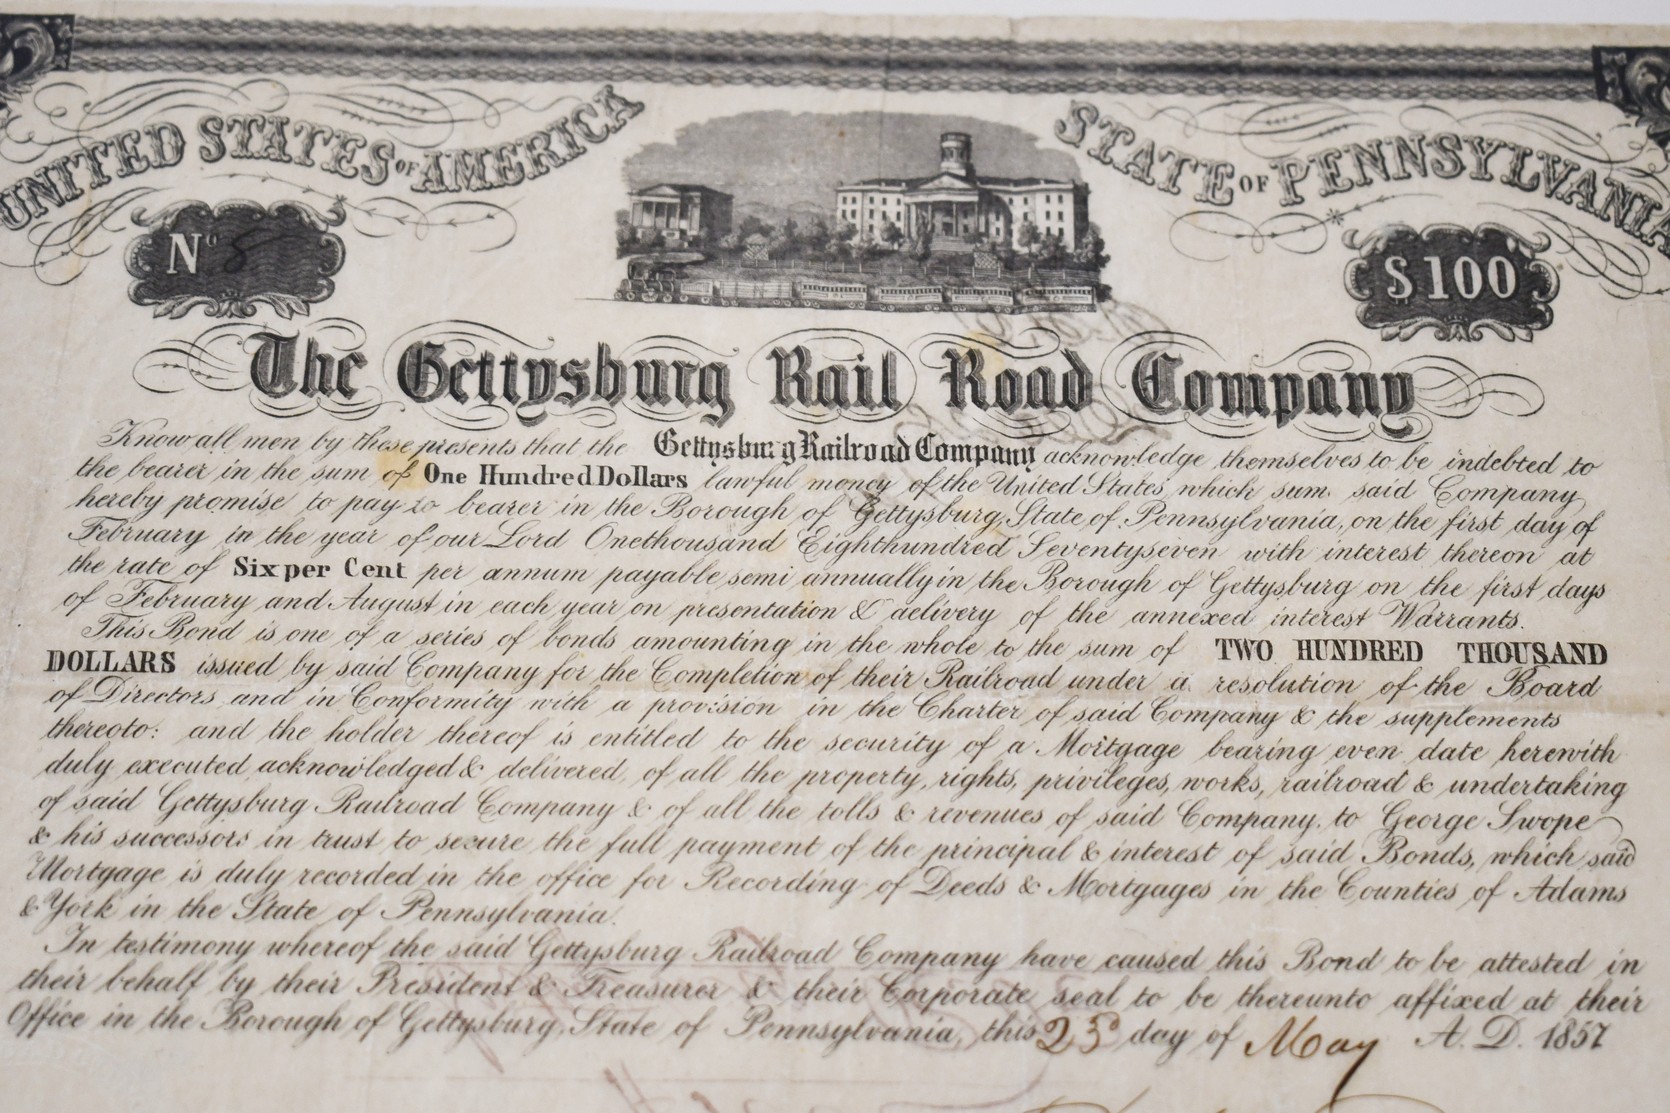 UNITED STATES OF AMERICA
STATE OF PENNSYLVANIA
No 8
$100
The Gettysburg Rail Road Company
Know all men by these presents that the Gettysburg Railroad Company acknowledge themselves to be indebted to
the bearer in the sum of One Hundred Dollars lawful money of the United States, which sum said Company
hereby promise to pay to bearer in the Borough of Gettysburg, State of Pennsylvania, on the first day of
February in the year of our Lord One thousand Eight hundred Seventy seven with interest thereon at
the rate of Six per Cent per annum payable semi annually in the Borough of Gettysburg on the first days
of February and August in each year on presentation & delivery of the annexed interest Warrants.
This Bond is one of a series of bonds amounting in the whole to the sum of TWO HUNDRED THOUSAND
DOLLARS issued by said Company for the Completion of their Railroad under a resolution of the Board
of Directors and in Conformity with a provision in the Charter of said Company & the supplements
thereto: and the holder thereof is entitled to the security of a Mortgage bearing even date herewith
duly executed, acknowledged & delivered, of all the property, rights, privileges, works, railroad & undertaking
of said Gettysburg Railroad Company & of all the tolls & revenues of said Company, to George Swope
& his successors in trust to secure the full payment of the principal & interest of said Bonds, which said
Mortgage is duly recorded in the office for Recording of Deeds & Mortgages in the Counties of Adams
& York in the State of Pennsylvania.
In testimony whereof the said Gettysburg Railroad Company have caused this Bond to be attested in
their behalf by their President & Treasurer & their Corporate seal to be thereunto affixed at their
Office in the Borough of Gettysburg, State of Pennsylvania, this 23d day of May A. D. 1857